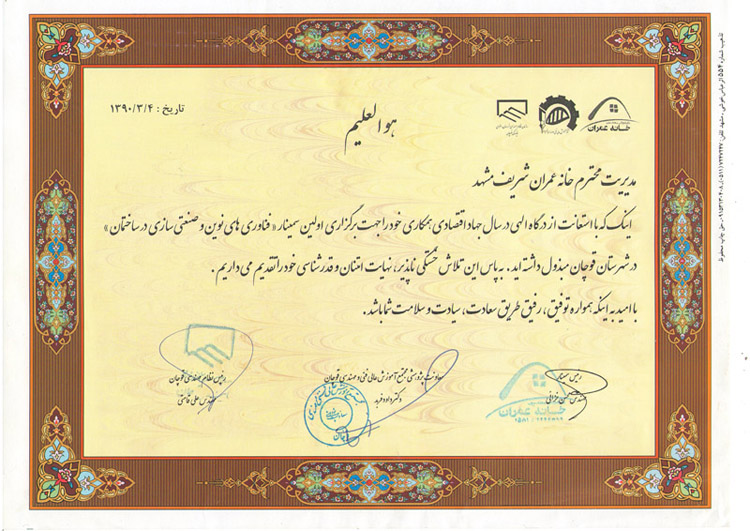 تاریخ : ۱۳۹۰/۳/۴
خانه عمران
هو العلیم
مدیریت محترم خانه عمران شریف مشهد
اینک که با استعانت از درگاه الهی در سال جهاد اقتصادی همکاری خود را جهت برگزاری اولین سمینار « فناوری های نوین و صنعتی سازی در ساختمان »
در شهرستان قوچان مبذول داشته اید . به پاس این تلاش خستگی ناپذیر، نهایت امتنان و قدرشناسی خود را تقدیم می داریم .
با امید به اینکه همواره توفیق، رفیق طریق سعادت، سیادت و سلامت شما باشد .
رئیس سمینار
معاونت پژوهشی مجتمع آموزش عالی فنی و مهندسی قوچان
دکتر داود فرید
رئیس نظام مهندسی قوچان
مهندس علی قاسمی
خانه عمران